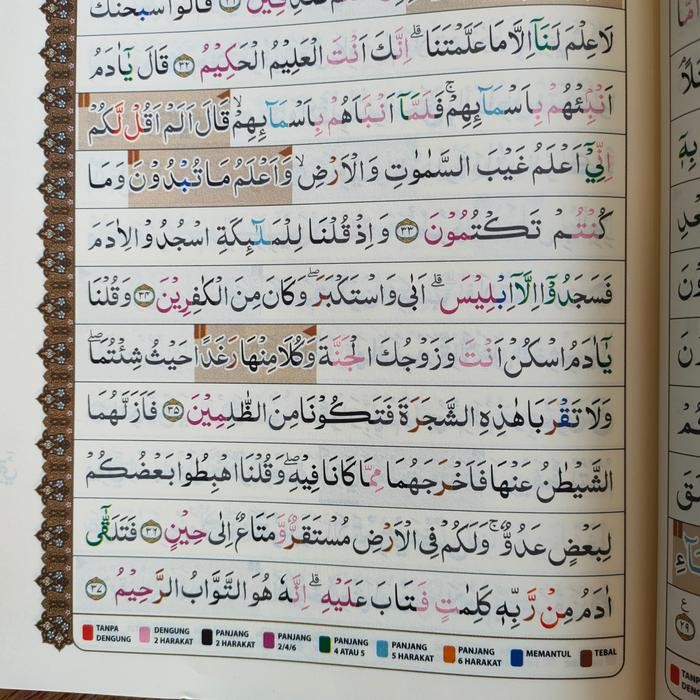 قَالُوْا سُبْحٰنَكَ
لَا عِلْمَ لَنَآ اِلَّا مَا عَلَّمْتَنَا ۗ اِنَّكَ اَنْتَ الْعَلِيْمُ الْحَكِيْمُ ٣٢ قَالَ يٰٓاٰدَمُ
اَنْۢبِئْهُمْ بِاَسْمَاۤىِٕهِمْ ۚ فَلَمَّآ اَنْۢبَاَهُمْ بِاَسْمَاۤىِٕهِمْۙ قَالَ اَلَمْ اَقُلْ لَّكُمْ
اِنِّيْٓ اَعْلَمُ غَيْبَ السَّمٰوٰتِ وَالْاَرْضِۙ وَاَعْلَمُ مَا تُبْدُوْنَ وَمَا
كُنْتُمْ تَكْتُمُوْنَ ٣٣ وَاِذْ قُلْنَا لِلْمَلٰۤىِٕكَةِ اسْجُدُوْا لِاٰدَمَ
فَسَجَدُوْٓا اِلَّآ اِبْلِيْسَۗ اَبٰى وَاسْتَكْبَرَۖ وَكَانَ مِنَ الْكٰفِرِيْنَ ٣٤ وَقُلْنَا
يٰٓاٰدَمُ اسْكُنْ اَنْتَ وَزَوْجُكَ الْجَنَّةَ وَكُلَا مِنْهَا رَغَدًا حَيْثُ شِئْتُمَاۖ
وَلَا تَقْرَبَا هٰذِهِ الشَّجَرَةَ فَتَكُوْنَا مِنَ الظّٰلِمِيْنَ ٣٥ فَاَزَلَّهُمَا
الشَّيْطٰنُ عَنْهَا فَاَخْرَجَهُمَا مِمَّا كَانَا فِيْهِۖ وَقُلْنَا اهْبِطُوْا بَعْضُكُمْ
لِبَعْضٍ عَدُوٌّۚ وَلَكُمْ فِى الْاَرْضِ مُسْتَقَرٌّ وَّمَتَاعٌ اِلٰى حِيْنٍ ٣٦ فَتَلَقّٰٓى
اٰدَمُ مِنْ رَّبِّهٖ كَلِمٰتٍ فَتَابَ عَلَيْهِۗ اِنَّهٗ هُوَ التَّوَّابُ الرَّحِيْمُ ٣٧
TANPA DENGUNG DENGUNG 2 HARAKAT PANJANG 2 HARAKAT PANJANG 2/4/6 PANJANG 4 ATAU 5 PANJANG 5 HARAKAT PANJANG 6 HARAKAT MEMANTUL TEBAL